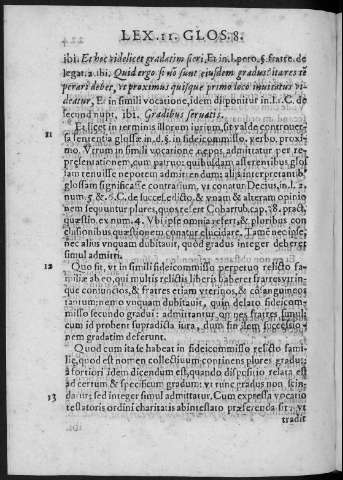 LEX. 11. GLOS. 8.
ibi. Et hoc videlicet gradatim fieri, Et in l. pero. §. fratre. de
legat. 2. ibi. Quid ergo si nõ sunt eiusdem gradus? ita res tẽ
perari debet, vt proximus quisque primo loco inuitatus vi-
deatur, Et in simili vocatione, idem disponitur in l. 1. C. de
secund. nupt. ibi. Gradibus seruatis.
11 Et licet in terminis illorum iurium, sit valde controuer-
sa sententia glossæ in d. §. in fideicommisso, verbo, proxi-
mo. Vtrum in simili vocatione nepos admittatur per re-
præsentationem, cum patruo: quibusdam asserentibus, glos
sam tenuisse nepotem admittendum: alijs interpretantib9
glossam significasse contrarium, vt conatur Decius, in l. 2.
num. 5 &. 6. C. de succes. edicto, & vnam & alteram opinio
nem sequuntur plures, quos refert Cobarrub. cap. 38. pract.
quæstio. ex num. 4. Vbi ipse omnia refert, & pluribus con
clusionibus quæstionem conatur elucidare. Tamẽ nec ipse,
nec alius vnquam dubitauit, quòd gradus integer deberet
simul admitti.
12 Quo fit, vt in simili fideicommisso perpetuo relicto fa-
miliæ ab eo, qui multis relictis liberis haberet fratres vtrin-
que coniunctos, & fratres etiam vterinos, & cõsanguineos
tantum: nemo vnquam dubitauit, quin delato fideicom-
misso secundo gradui: admittantur omnes fratres simul:
cum id probent supradicta iura, dum fidem successio-
nem gradatim deferunt.
Quod cum ita se habeat in fideicommisso relicto fami-
liæ, quod est nomen collectiuum continens plures gradus:
à fortiori idem dicendum est, quando dispositio relata est
ad certum & specificum gradum: vt tunc gradus non scin-
13 datur: sed integer simul admittatur. Cum expressa vocatio
testatoris ordini charitatis abintestato præferenda sit: vt
tradit